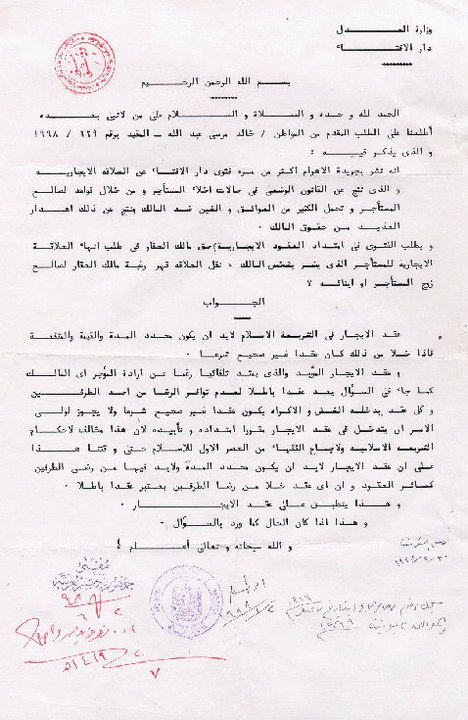 وزارة العدل
دار الافتاء
بسم الله الرحمن الرحيم
الحمد لله وحده و الصلاة و السلام على من لانبى بعده
أطلعنا على الطلب المقدم من المواطن / خالد مرسى عبد الله ــ المقيد برقم ٦٢٩ / ١٩٩٨
و الذى يذكر فيه :
انه نشر بجريدة الاهرام اكثر من مره فتوى دار الافتاء عن العلاقه الايجاريه
و الذى نتج عن القانون الوضعى فى حالات اخلاء المستأجر و من خلال قواعد لصالح
المستأجر و تحمل الكثير من العوائق و الغبن ضد المالك ونتج عن ذلك اهدار
العديد من حقوق المالك .
و يطلب الفتوى فى امتداد العقود الايجارية / حق مالك العقار فى طلب انهاء العلاقة
الايجارية للمستأجر الذى يضر بشخص المالك . نقل العلاقه قهر رغبة مالك العقار لصالح
زوج المستأجر او ابنائه ؟
الجواب
عقد الايجار فى الشريعة الاسلام لابد ان يكون محدد المدة والقيمة والمنفعة
فاذا خلا من ذلك كان عقدا غير صحيح شرعا .
و عقد الايجار المؤبد والذى يمتد تلقائيا رغما عن ارادة المؤجر اى المالك
كما جاء فى السؤال يعد عقدا باطلا لعدم توافر الرضا من احد الطرفين
و كل عقد يدخله الغش و الاكراه يكون عقدا غير صحيح شرعا ولا يجوز لولى
الامر ان يتدخل فى عقد الايجار مقررا امتداده و تأبيده لان هذا مخالف لاحكام
الشريعه الاسلاميه ولاجماع الفقهاء من العصر الاول للاسلام حتى وقتنا هذا
على ان عقد الايجار لابد ان يكون محدد المدة ولابد فيها من رضى الطرفين
كسائر العقود و ان اى عقد خلا من رضا الطرفين يعتبر عقدا باطلا .
و هذا ينطبق على عقد الايجار .
و هذا اذا كان الحال كما ورد بالسؤال .
و الله سبحانه و تعالى أعلم ؛
مفتى
جمهورية مصر العربية